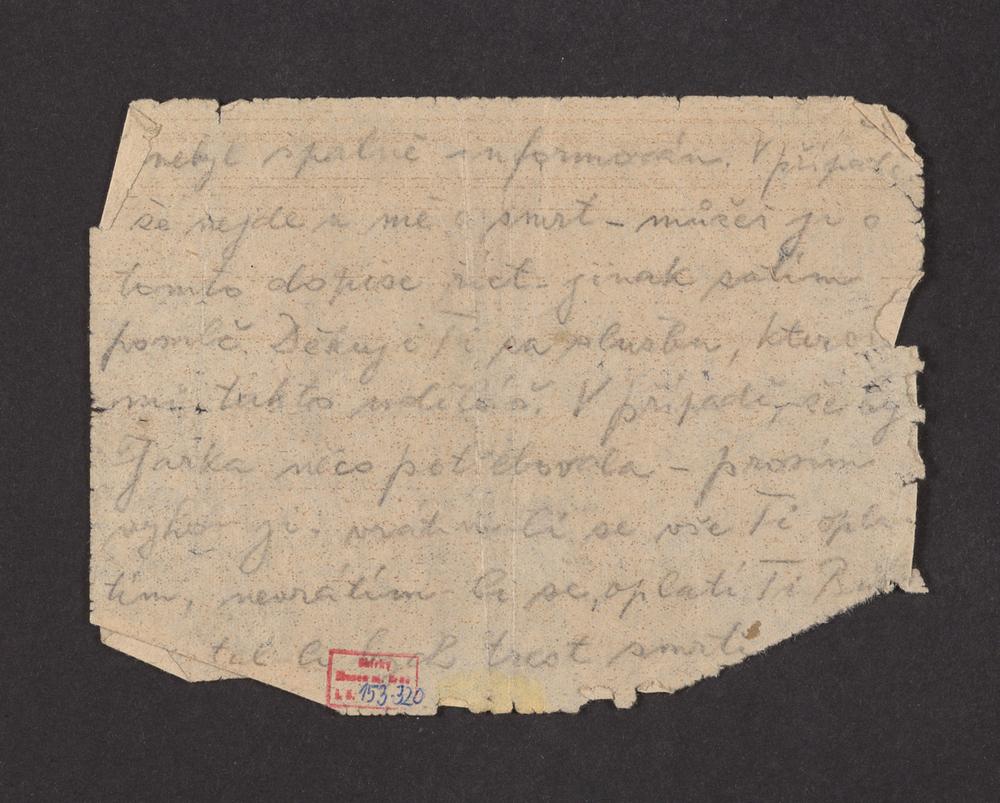 nebyl špatně informován. V případě
že nejde u mě o smrt – můžeš jí o
tomto dopise říct. jinak zatím
pomlč. Děkuji Ti za službu, kterou
mi takto uděláš. V případě, že by
Jarka něco potřebovala – prosím
vyhov jí. vrátím li se vše Ti opla-
tím, nevrátím li se, oplatí Ti
trest smrti
Sbírky
Musea m. Brna
153.320